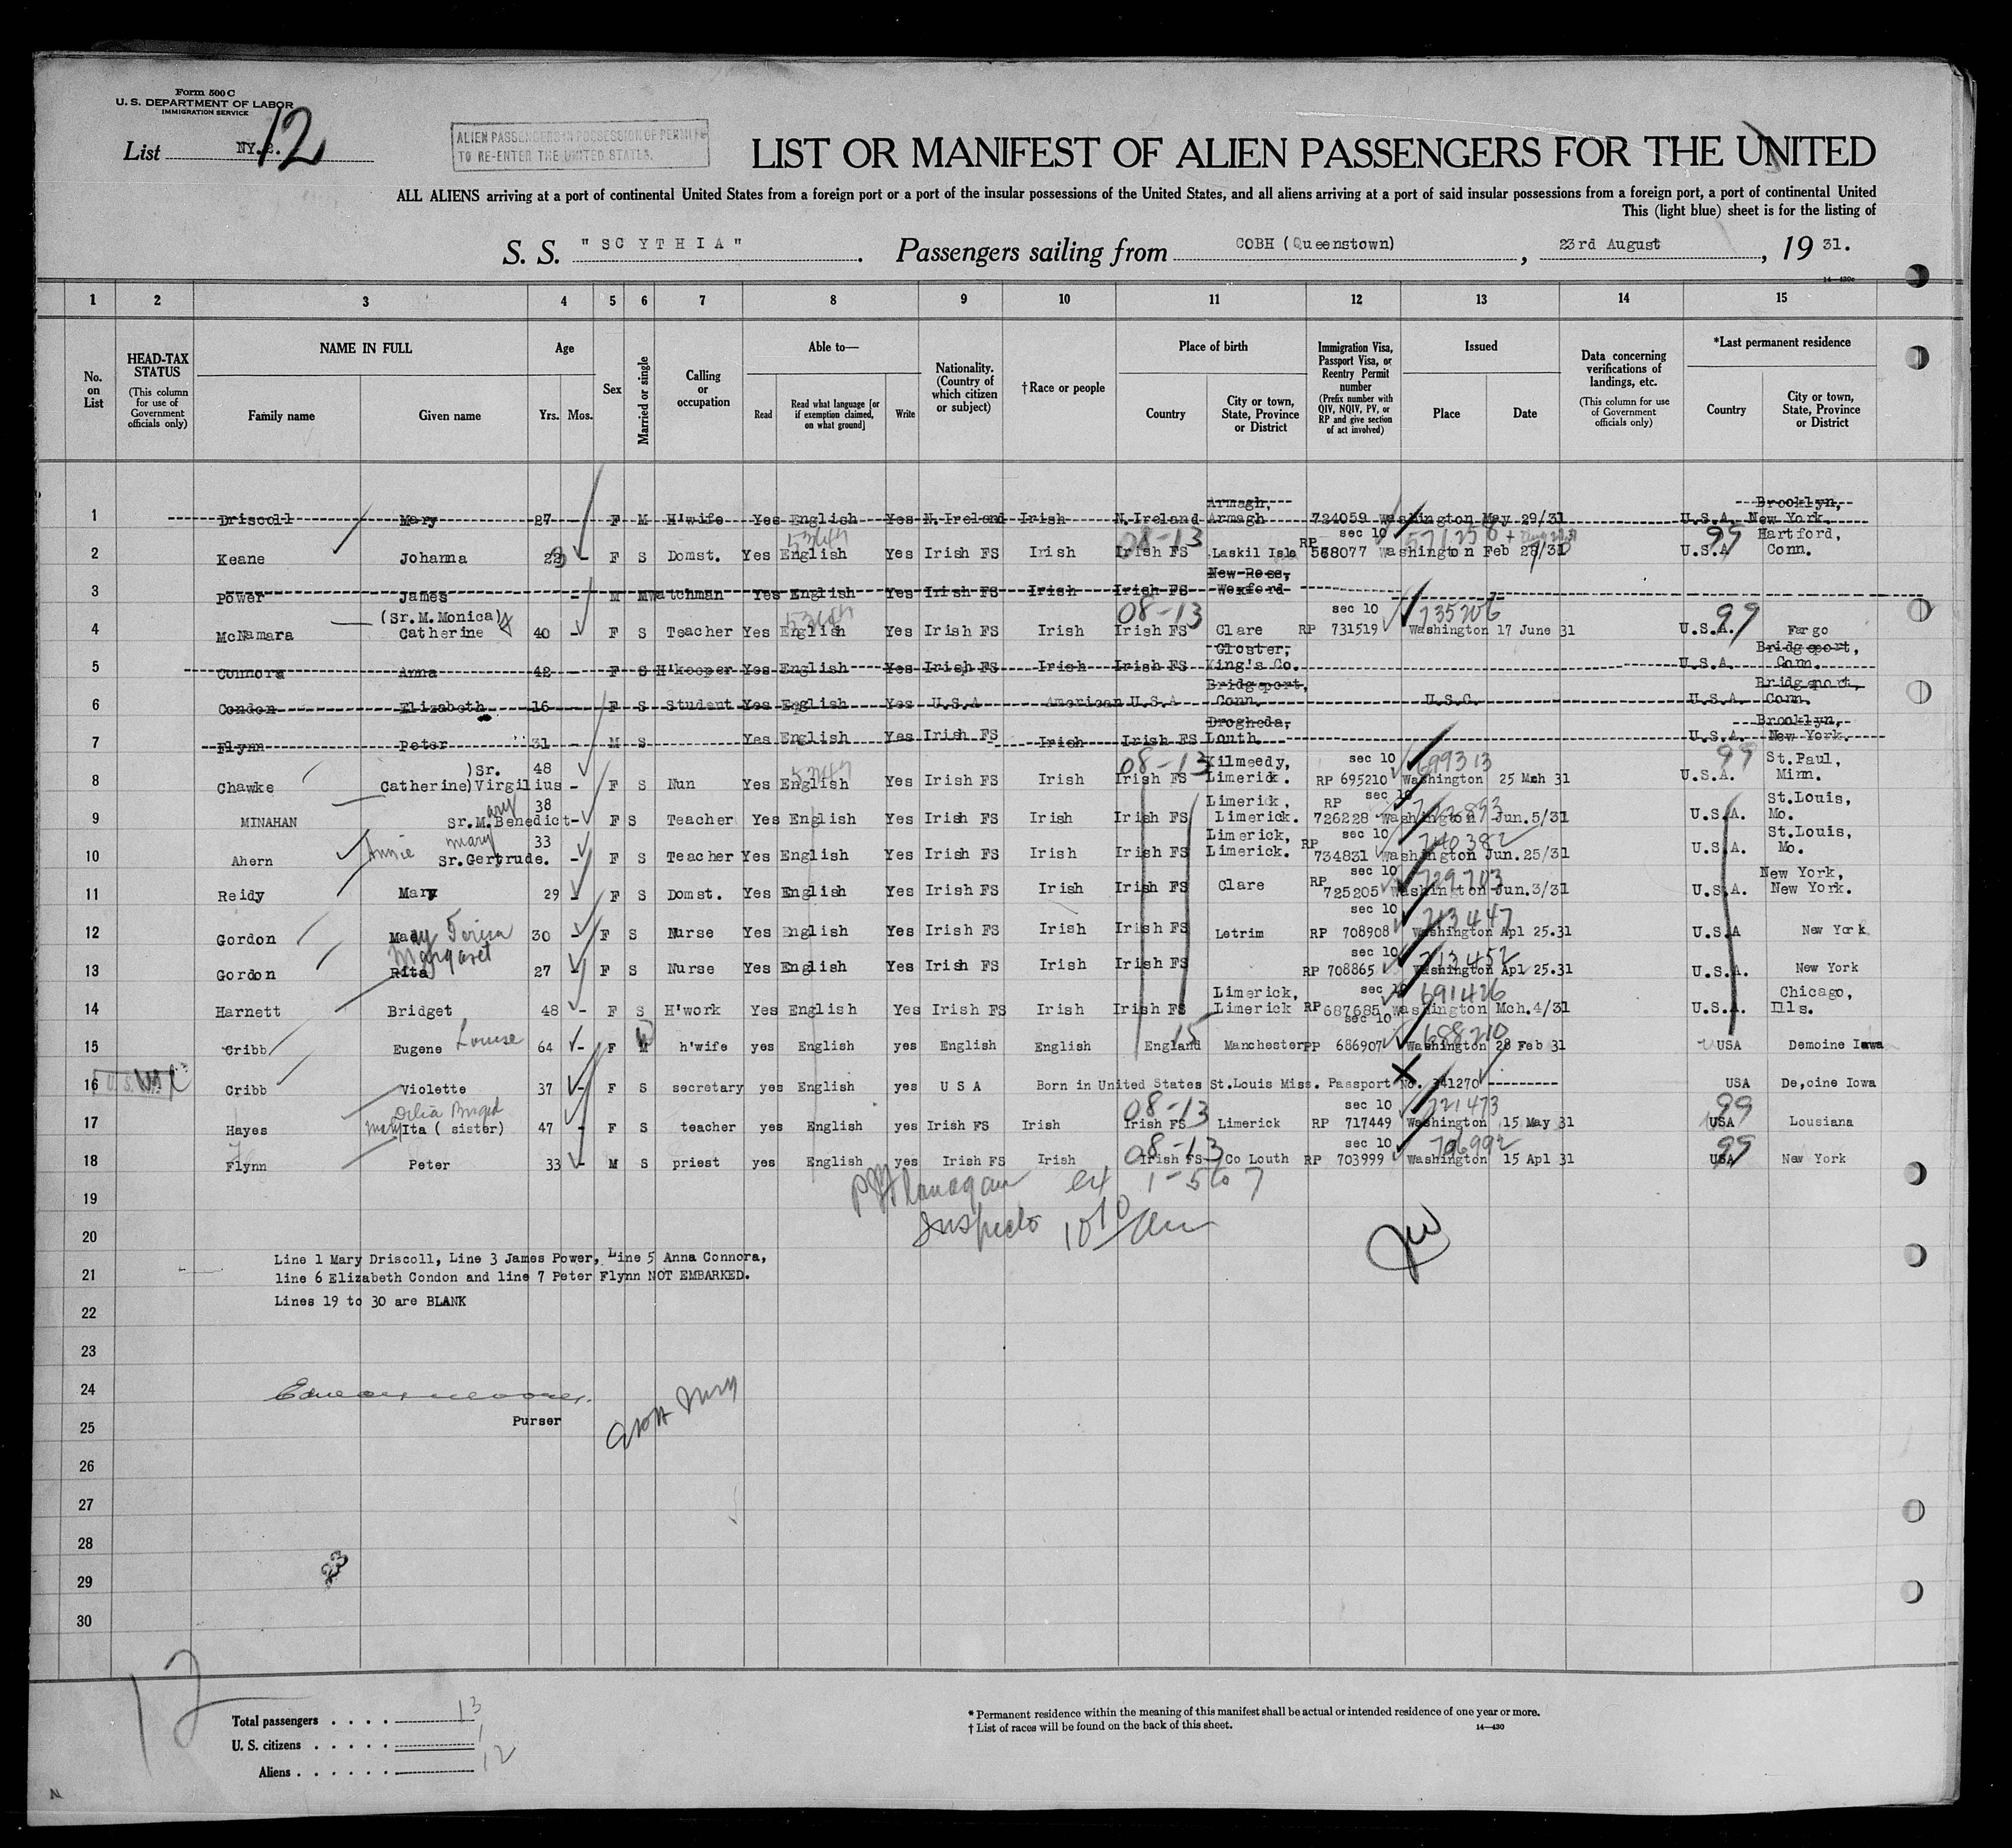 Form 500 C
U. S. DEPARTMENT OF LABOR
IMMIGRATION SERVICE
List NY. 2. 12
ALIEN PASSENGERS IN POSSESSION OF PERMITS
TO RE-ENTER THE UNITED STATES.
LIST OR MANIFEST OF ALIEN PASSENGERS FOR THE UNITED
ALL ALIENS arriving at a port of continental United States from a foreign port or a port of the insular possessions of the United States, and all aliens arriving at a port of said insular possessions from a foreign port, a port of continental United
This (light blue) sheet is for the listing of
S. S. "SCYTHIA". Passengers sailing from COBH (Queenstown), 23rd August, 19 31.
14—430c
1 2 3 4 5 6 7 8 9 10 11 12 13 14 15
No. on List
HEAD-TAX STATUS (This column for use of Government officials only)
NAME IN FULL Family name Given name
Age Yrs. Mos.
Sex
Married or single
Calling or occupation
Able to— Read Read what language [or if exemption claimed, on what ground] Write
Nationality. (Country of which citizen or subject)
†Race or people
Place of birth Country City or town, State, Province or District
Immigration Visa, Passport Visa, or Reentry Permit number (Prefix number with QIV, NQIV, PV, or RP and give section of act involved)
Issued Place Date
Data concerning verifications of landings, etc. (This column for use of Government officials only)
*Last permanent residence Country City or town, State, Province or District
1 Driscoll Mary 27 - F M H'wife Yes English Yes N.Ireland Irish N.Ireland Armagh, Armagh 724059 Washington May 29/31 U.S.A. Brooklyn, New York.
2 Keane Johanna 23 - F S Domst. Yes English 5364 Yes Irish FS Irish Irish FS 08-13 Laskil Isla sec 10 RP 568077 Washington 571258 Feb 28/31 U.S.A 99 Hartford, Conn.
3 Power James - M M Watchman Yes English Yes Irish FS Irish Irish FS New-Ross, Wexford
4 McNamara (Sr. M. Monica) Catherine 40 - F S Teacher Yes English Yes Irish FS Irish Irish FS 08-13 Clare sec 10 RP 731519 735206 Washington 17 June 31 U.S.A. 99 Fargo
5 Connora Anna 42 - F S H'keeper Yes English Yes Irish FS Irish Irish FS Gloster, King's Co. U.S.A. Bridgeport, Conn.
6 Condon Elizabeth 16 F S Student Yes English Yes U.S.A American U.S.A Bridgeport, Conn. U.S.C. U.S.A. Bridgeport, Conn.
7 Flynn Peter 31 - M S Yes English Yes Irish FS Irish Irish FS Drogheda, Louth. U.S.A. Brooklyn, New York.
8 Chawke Catherine) )Sr. Virgilius 48 - F S Nun Yes English Yes Irish FS Irish Irish FS 08-13 Kilmeedy, Limerick. sec 10 RP 695210 699313 Washington 25 Mch 31 U.S.A. 99 St.Paul, Minn.
9 MINAHAN Sr.M.ary Benedict 38 - F S Teacher Yes English Yes Irish FS Irish Irish FS Limerick, Limerick. sec 10 RP 726228 Washington Jun.5/31 U.S.A. St.Louis, Mo.
10 Ahern Annie Mary Sr.Gertrude. 33 - F S Teacher Yes English Yes Irish FS Irish Irish FS Limerick, Limerick. sec 10 RP 734831 740382 Washington Jun.25/31 U.S.A. St.Louis, Mo.
11 Reidy Mary 29 - F S Domst. Yes English Yes Irish FS Irish Irish FS Clare sec 10 RP 725205 729703 Washington Jun.3/31 U.S.A. New York, New York.
12 Gordon Mary Teresa 30 - F S Nurse Yes English Yes Irish FS Irish Irish FS Letrim sec 10 RP 708908 713447 Washington Apl 25.31 U.S.A New York
13 Gordon Margaret Rita 27 - F S Nurse Yes English Yes Irish FS Irish Irish FS sec 10 RP 708865 713452 Washington Apl 25.31 U.S.A. New York
14 Harnett Bridget 48 - F S H'work Yes English Yes Irish FS Irish Irish FS Limerick, Limerick sec 10 RP 687685 691426 Washington Mch.4/31 U.S.A. Chicago, Ills.
15 Cribb Eugene Louise 64 - F M h'wife yes English yes English English England 15 Manchester sec 10 RP 686907 688210 Washington 28 Feb 31 USA Demoine Iowa
16 Cribb Violette 37 - F S secretary yes English yes U S A Born in United States St.Louis Miss. Passport No. 341270 --------- USA De,oine Iowa
17 Hayes Delia Briged Mary Ita ( sister) 47 - F S teacher yes English yes Irish FS Irish Irish FS 08-13 Limerick sec 10 RP 717449 721473 Washington 15 May 31 USA 99 Lousiana
18 Flynn Peter 33 - M S priest yes English yes Irish FS Irish Irish FS 08-13 Co Louth sec 10 RP 703999 706992 Washington 15 Apl 31 USA 99 New York
19 1-5 to 7
20
Line 1 Mary Driscoll, Line 3 James Power, Line 5 Anna Connora,
21
line 6 Elizabeth Condon and line 7 Peter Flynn NOT EMBARKED.
Lines 19 to 30 are BLANK
22
23
24
Purser
25
26
27
28
29
30
12
Total passengers . . . . 13
U. S. citizens . . . . . 1
Aliens . . . . . . 12
* Permanent residence within the meaning of this manifest shall be actual or intended residence of one year or more.
† List of races will be found on the back of this sheet.
14—430